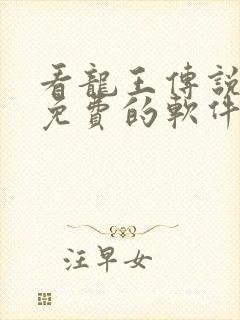 看龍王傳說
免費的軟件
汪早女